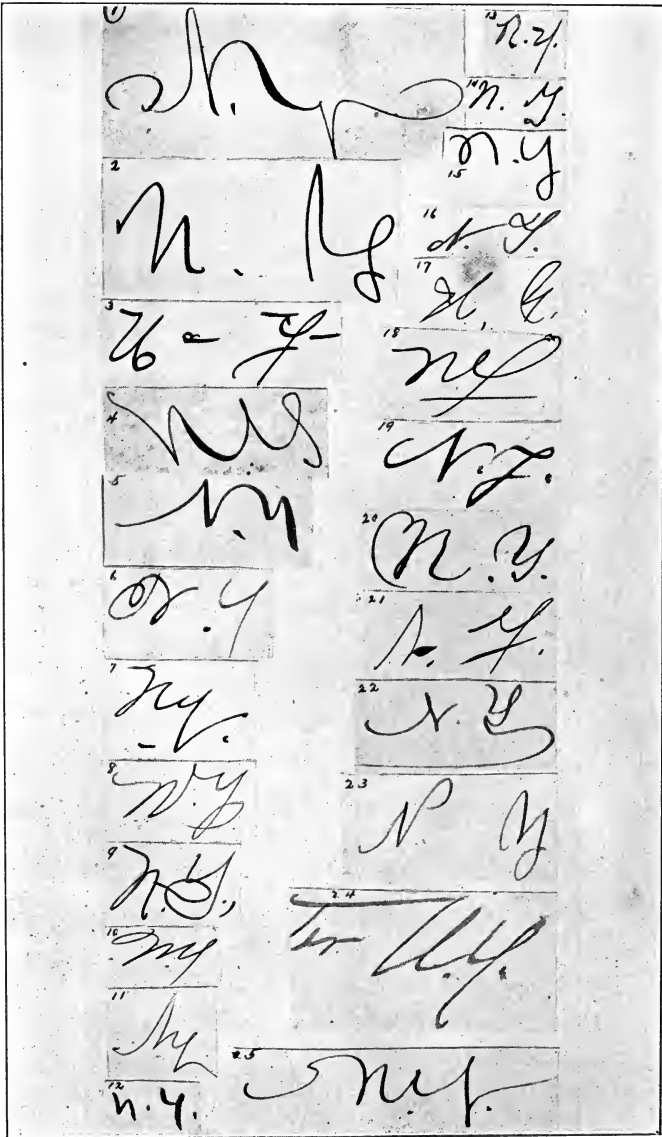 1
N. Y
2
N. Y
3
N - Y -
4
N.Y.
5
N.Y
6
N. Y.
7
N.Y.
8
N.Y.
9
N.Y.
10
N.Y.
11
N.Y.
12
N.Y.
13
N.Y.
14
N. Y.
15
N.Y
16
N. Y.
17
N. Y.
18
NY
19
N.Y.
20
N.Y.
21
N. Y.
22
N. Y
23
N. Y
24
N.Y.
25
N.Y.